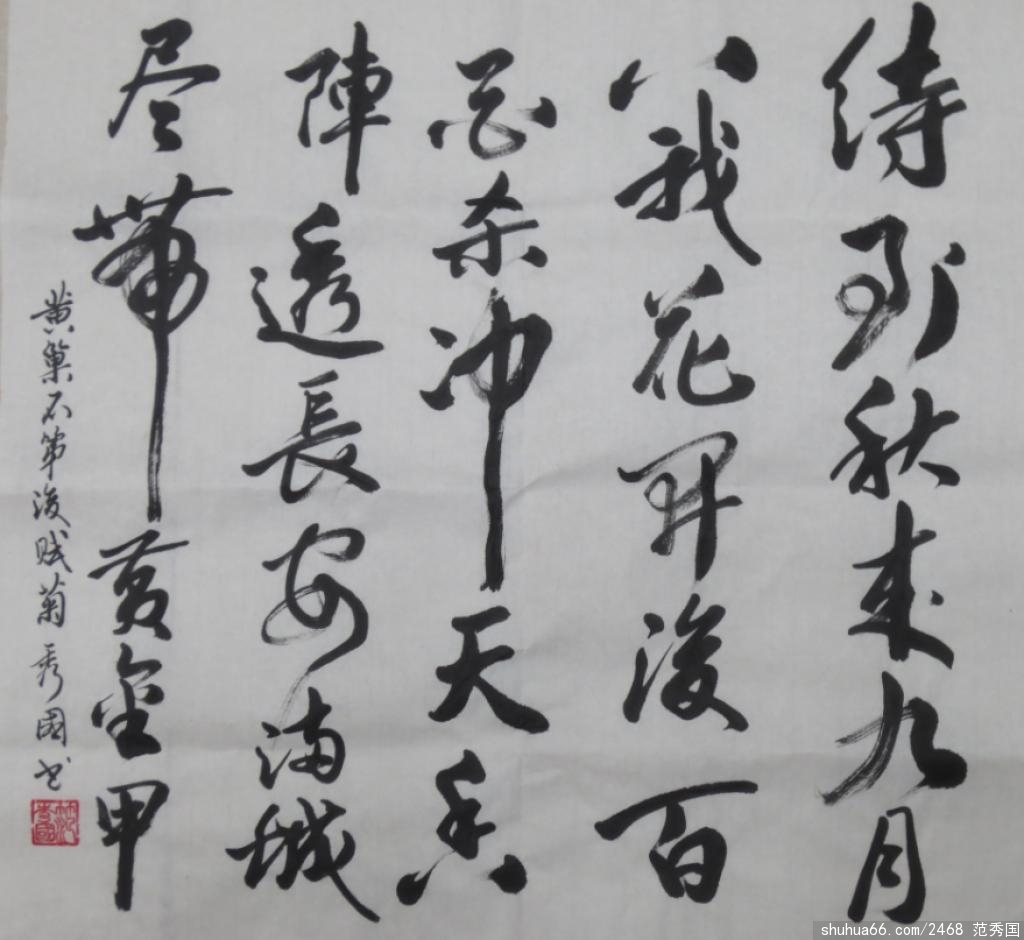 待到秋来九月
八我花开後百
花杀冲天香
陣透長安满城
尽带黄金甲
黄巢不第後赋菊秀國书
shuhua66.com/2468 范秀国